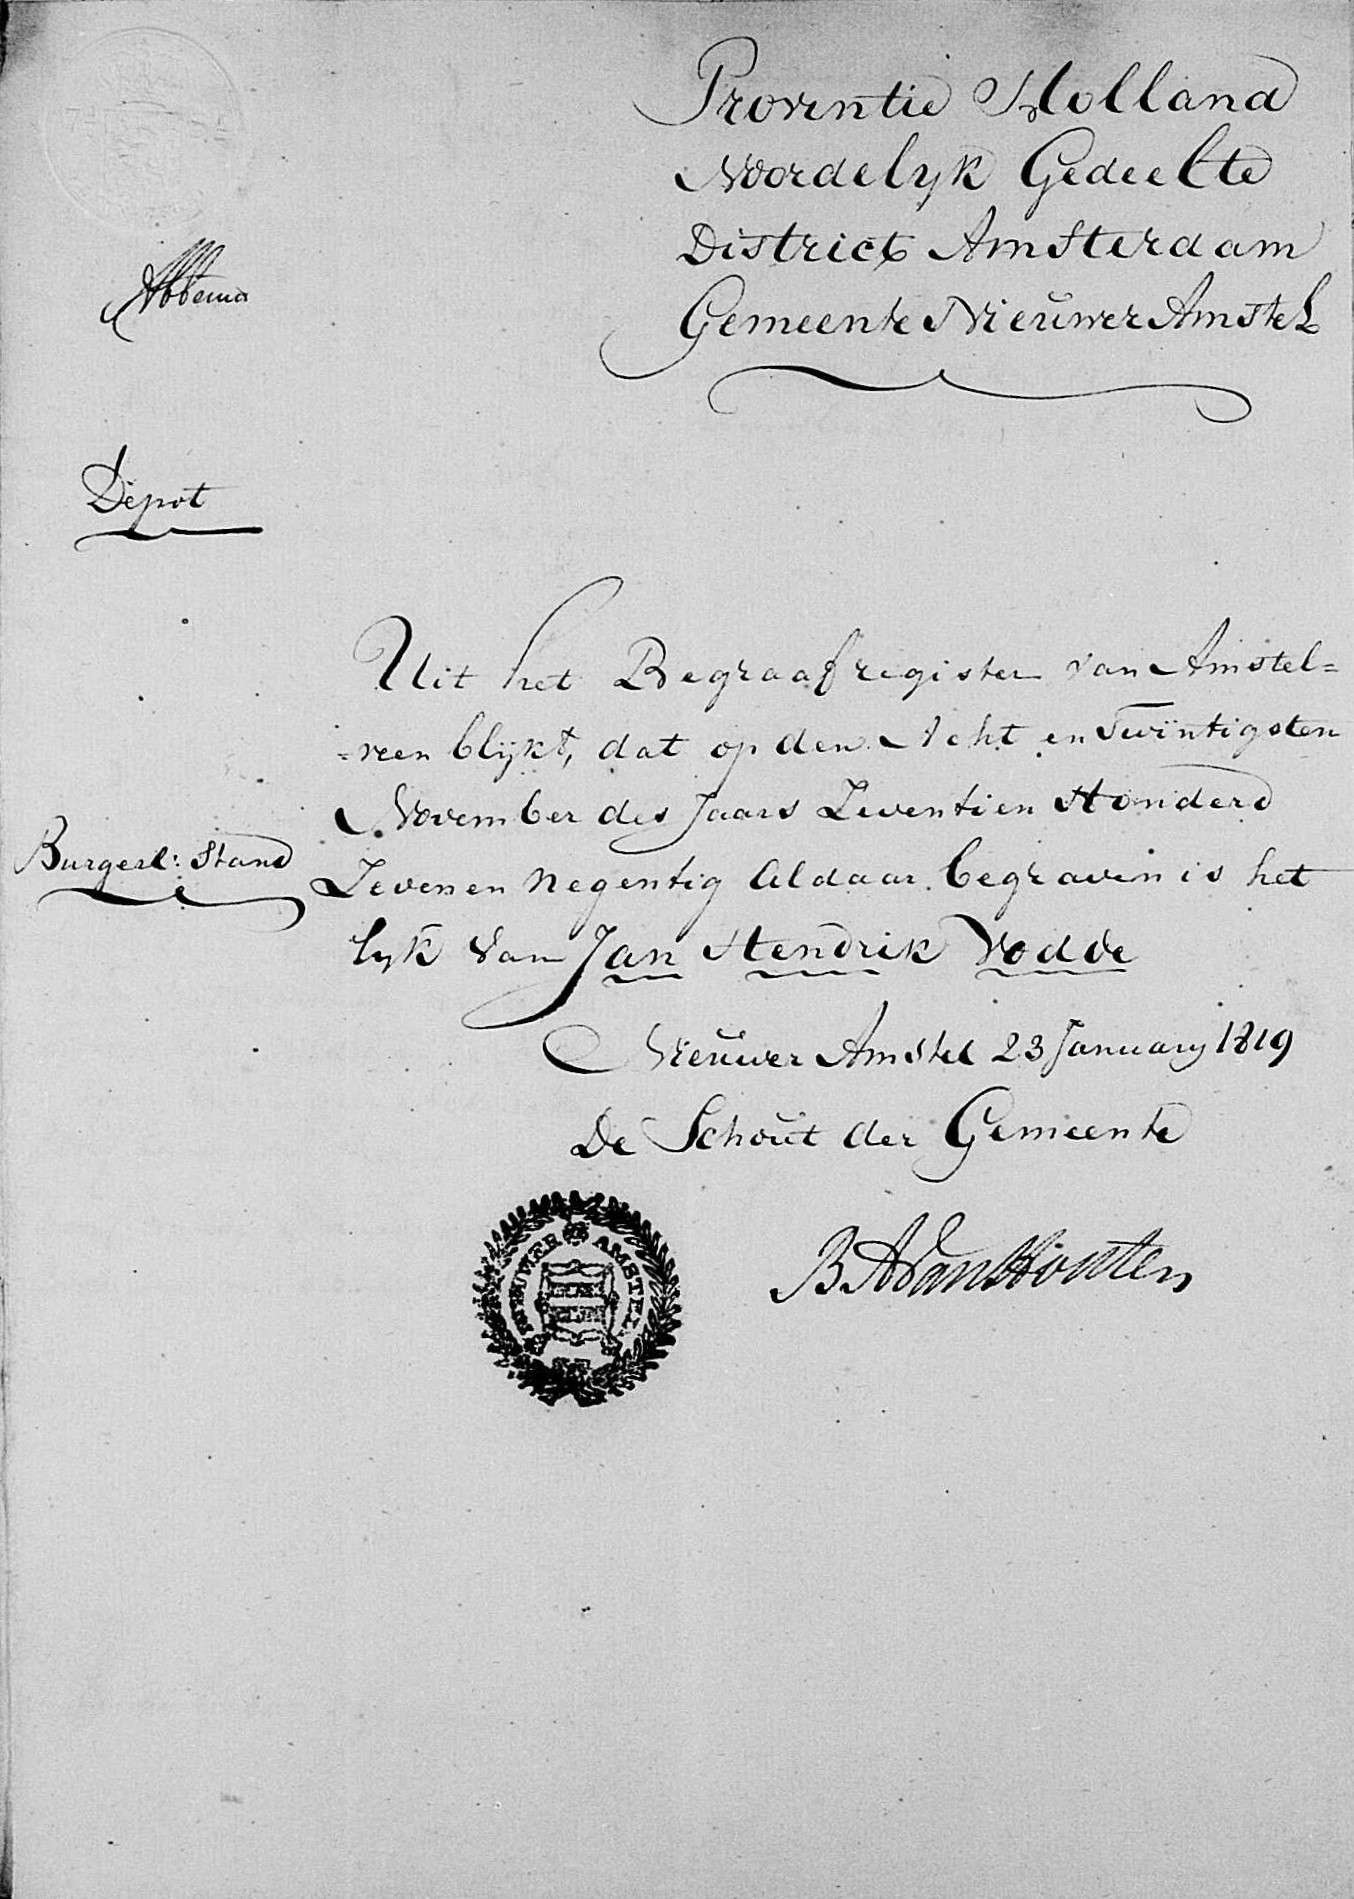 Provintie Holland
Noordelyk Gedeelte
District Amsterdam
Gemeente Nieuwer Amstel
Abbema
Depot
Uit het Begraafregister van Amstel=
=veen blijkt, dat op den Acht en Twintigsten
November des Jaars Zeventien Honderd
Burgerl: Stand
Zeven en Negentig Aldaar begraven is het
lyk van Jan Hendrik Vodde
Nieuwer Amstel 23 January 1819
De Schout der Gemeente
NIEUWER AMSTEL
B A Van Houten